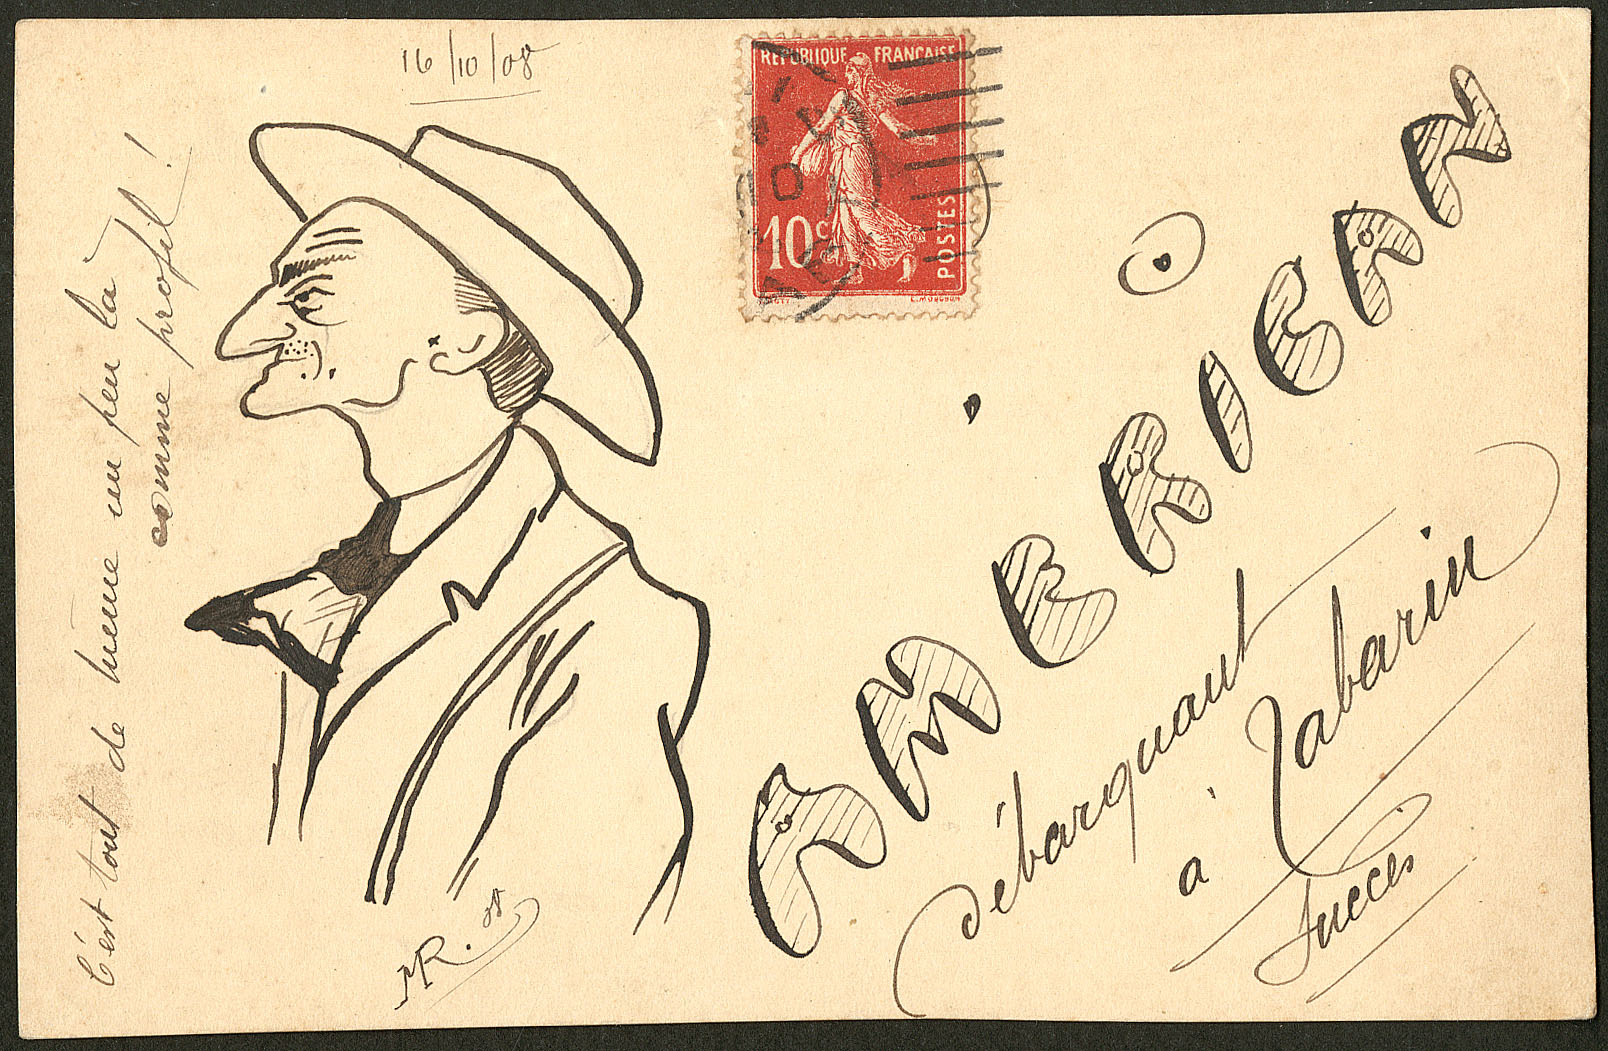 16/10/08
C'est tout de même un peu là
comme profil !
RÉPUBLIQUE FRANÇAISE
10c
POSTES
AMERICAN
débarquant
à
Tabarin
Succès
MR. 08